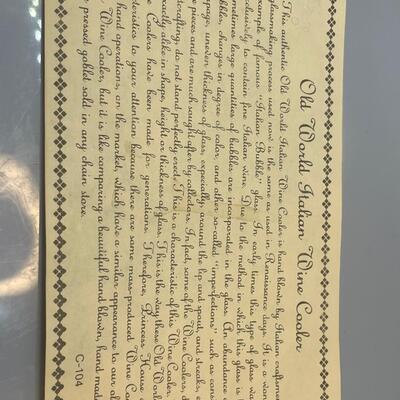 Old World Italian Wine Cooler
This authentic Old World Italian Wine Cooler is hand blown by Italian craftsmen
glassmaking process used now is the same as used in Renaissance days. It is a won
example of famous "Italian Bubble" glass. In early times this type of glass was
clusively to contain fine Italian wine. Due to the method in which this glass is
metimes large quantities of bubbles are incorporated in the glass. An abundance
bbles, changes in degree of color, and other so-called "imperfections" such as cons
epage, uneven thickness of glass, expecially around the lip and spout, and streaks,
e pieces and are much sought after by collectors. In fact, some of the Wine Coolers, d
dcrafting, do not stand perfectly erect. This is a characteristic of this Wine Cooler.
exactly alike in shape, height or thickness of glass. This is the way these Old World
e Coolers have been made for generations. Therefore, Princess House
cteristics to your attention because there are some mass-produced Wine Co
hand operations, on the market, which have a similar appearance to our ol
Wine Cooler, but it is like comparing a beautiful hand blown, hand mad
pressed goblet sold in any chain store.
C-104